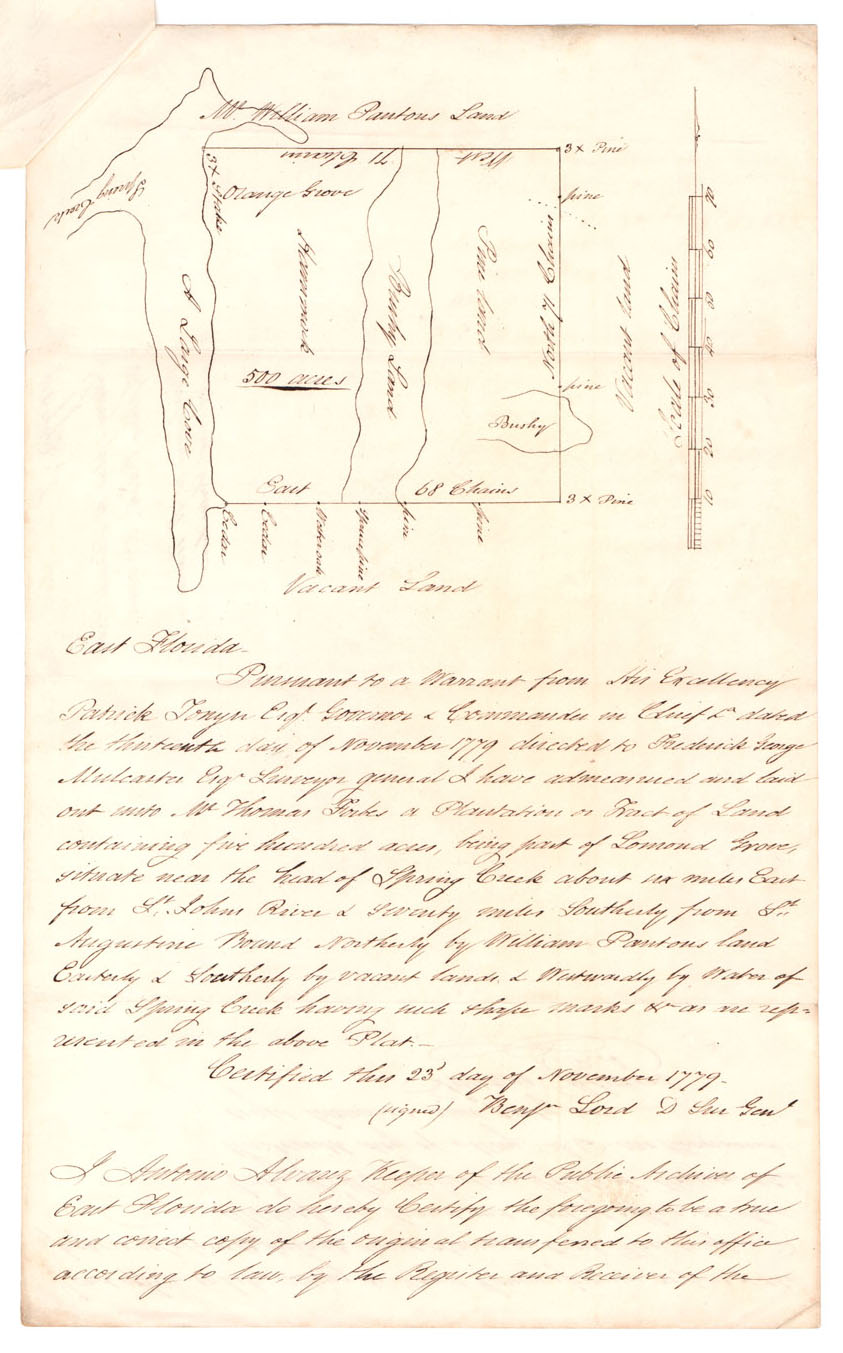 Mr. William Pantons Land
West 71 Chains
3 X Pine
3 X Stake
Orange Grove
pine
Spring Creek
A Large Cove
Hammock
Bushy Land
Pine land
North 71 Chains
Vacant land
Scale of Chains
70
60
50
40
30
20
10
500 acres
pine
Bushy
East 68 Chains
3 X Pine
Cedar
Cedar
Wateroak
Sprucepine
pine
pine
Vacant Land
East Florida-
Pursuant to a Warrant from His Excellency
Patrick Tonyn Esqr. Governor & Commander in Chief &c dated
the thirteenth day of November 1779 directed to Frederick George
Mulcaster Esqr Surveyor general I have admeasured and laid
out unto Mr Thomas Forbes a Plantation or Tract of Land
containing five hundred acres, being part of Lomond Grove,
situate near the head of Spring Creek about six miles East
from St. Johns River & seventy miles Southerly from St.
Augustine Bound Northerly by William Pantons land
Easterly & Southerly by vacant lands & Westwardly by Water of
said Spring Creek having such shape marks &c as are rep=
resented in the above Plat.-
Certified this 23d day of November 1779-
(signed) Benjn Lord D Sur Genl
I Antonio Alvarez Keeper of the Public Archives of
East Florida do hereby Certify the foregoing to be a true
and correct copy of the original transferred to this office
according to law, by the Register and Receiver of the